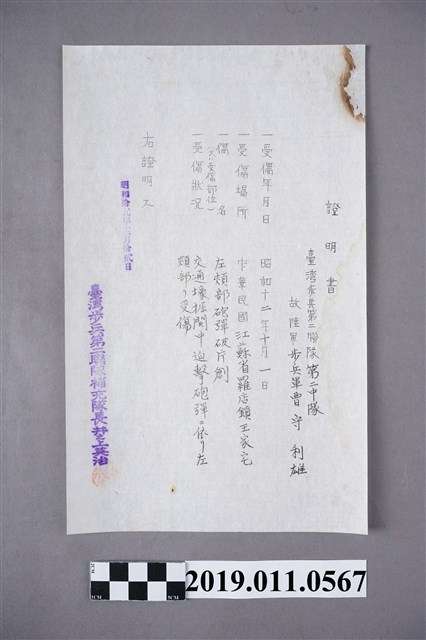 證明書
臺灣步兵第二聯隊第二中隊
故陸軍步兵軍曹 守 利雄
一受傷年月日 昭和十二年十月一日
一受傷場所 中華民國江蘇省羅店鎮王家宅
一傷名 左頬部砲彈破片創
(又ハ受傷部位)
一受傷狀況 交通壕掘開中迫擊砲彈ニ依リ左
頬部ニ受傷
右證明ス
昭和拾
臺灣步兵第二聯隊補充隊長井上英治
2CM
1CM
5CM
2019.011.0567